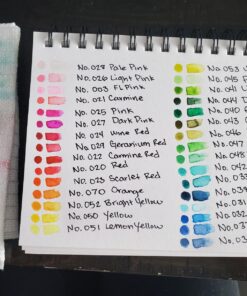 No. 028 Pale Pink
No. 026 Light Pink
No. 003 Fl.Pink
No. 021 Carmine
No. 025 Pink
No. 027 Dark Pink
No. 024 Wine Red
No. 029 Geranium Red
No. 022 Carmine Red
No. 020 Red
No. 023 Scarlet Red
No. 070 Orange
No. 052 Bright Yellow
No. 050 Yellow
No. 051 Lemon Yellow
No. 053
No. 045
No. 041
No. 044
No. 040
No. 043
No. 046
No. 047
No. 048
No. 042
No. 03
No. 039
No. 031
No. 03
No. 037
No. 03